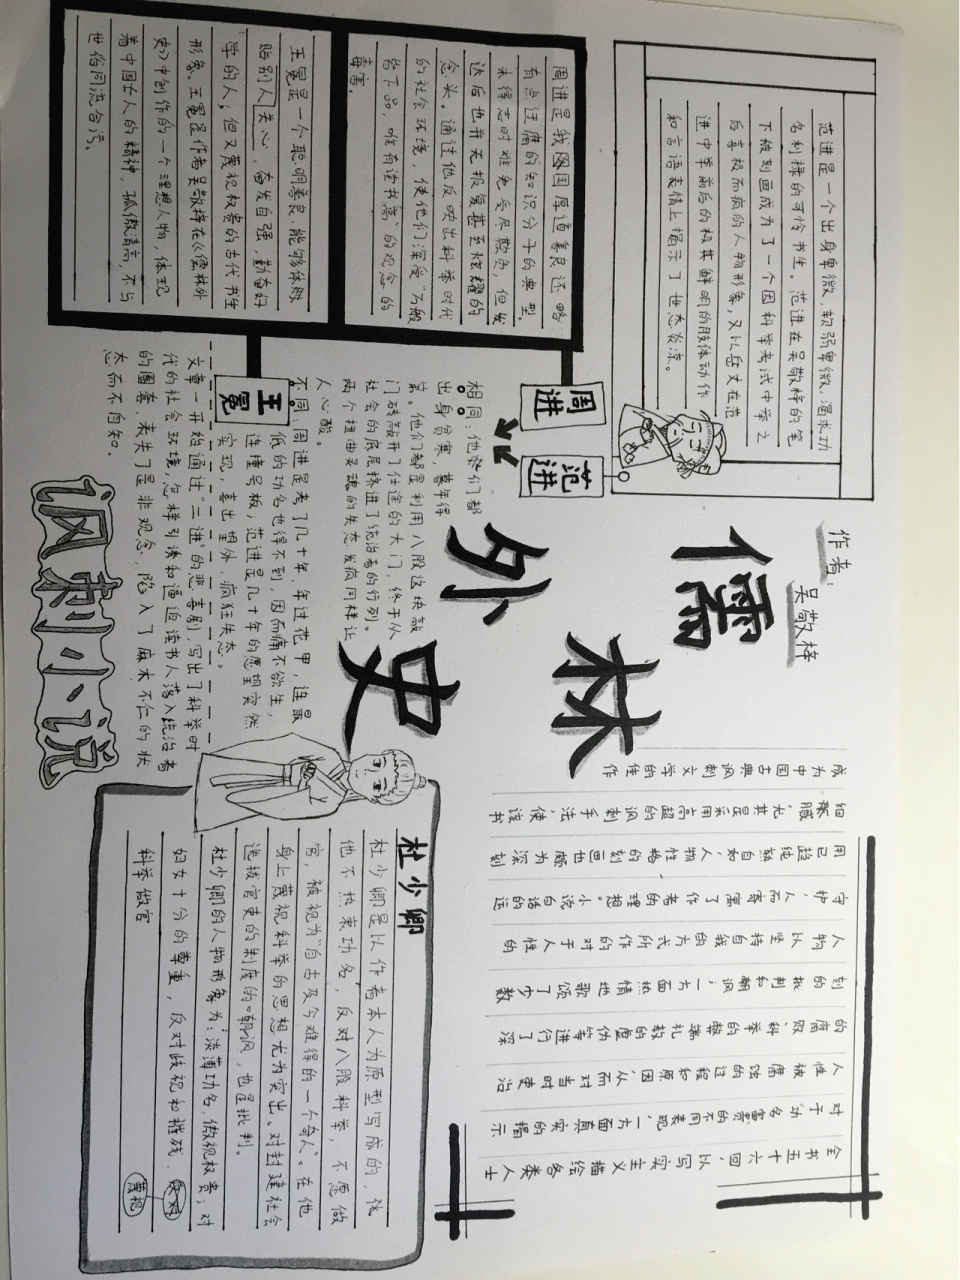 儒林外史
作者：吴敬梓
范进是一个出身卑微，软弱卑微，渴求功
名利禄的可怜书生。范进在吴敬梓的笔
下被刻画成为了一个因科举考试中举之
后喜极而疯的人物形象，又以岳丈在范
进中举前后的极其鲜明的肢体动作
和言语表情上揭示了世态炎凉。
周进
范进
周进是我国厚道善良还略
有点迂腐的知识分子的典型。
未得志时难免受尽欺负，但发
达后也并无报复甚至炫耀的
念头。通过他反映出科举时代
的社会环境，使他们深受“万般
皆下品，唯有读书高”的观念的
毒害。
王冕
王冕是一个聪明善良，能够体贴
贴别人关心，奋发自强，勤奋好
学的人，但又蔑视权贵的古代书生
形象。王冕是作者吴敬梓在《儒林外
史》中创作的一个理想人物，体现
着中国士人的精神，孤傲清高，不与
世俗同流合污。
相同：他们都
出身贫寒，暮年得
第。他们都是利用八股这块敲
门砖敲开了仕途的大门，终于从
社会的底层挤进了统治者的行列。
两个扭曲灵魂的失态发疯同样让
人心酸。
不同：周进是考了几十年，年过花甲，连最
低的功名也得不到，因而痛不欲生，
连撞号板；范进是几十年的愿望突然
实现，喜出望外，疯狂失态。
文章一开始通过“二进”的悲喜剧，写出了科举时
代的社会环境怎样引诱和逼迫读书人落入统治者
的圈套，丧失了是非观念，陷入了麻木不仁的状
态而不自知。
讽刺小说
杜少卿
杜少卿是以作者本人为原型写成的，
他不热衷功名，反对八股科举，不愿做
官，被视为“自古及今难得的一个奇人”。在他
身上蔑视科举的思想尤为突出。对封建社会
选拔官吏的制度的嘲讽，也是批判。
杜少卿的人物形象为：淡薄功名，傲视权贵；对
妇女十分的尊重，反对歧视和摧残．反对
科举做官
蔑视
全书五十六回，以写实主义描绘各类人士
对于“功名富贵”的不同表现，一方面真实的揭示
人性被腐蚀的过程和原因，从而对当时吏治
的腐败、科举的弊端礼教的虚伪等进行了深
刻的批判和嘲讽；一方面热情地歌颂了少数
人物以坚持自我的方式所作的对于人性的
守护，从而寄寓了作者的理想。小说白话的运
用已趋纯熟自如，人物性格的刻画也颇为深刻
细腻，尤其是采用高超的讽刺手法，使该书
成为中国古典讽刺文学的佳作